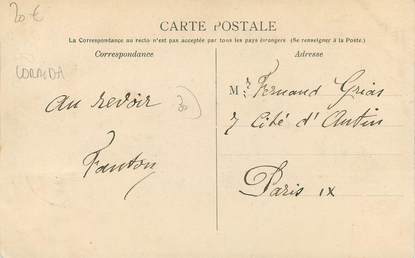 20 €
CARTE POSTALE
La Correspondance au recto n'est pas acceptée par tous les pays étrangers (Se renseigner à la Poste.)
Correspondance
Adresse
CORRIDA
au revoir
30
Fanton
Mr Fernand Grias
7 Cité d'Antin
Paris IX